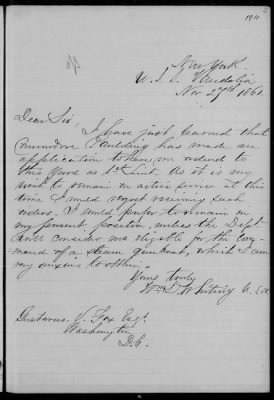 New York
U. S. S. Vandalia
Nov 27th 1861
Dear Sir,
I have just learned that
Commodore Paulding has made an
application to have me ordered to
this Yard as 1st Lieut. As it is my
wish to remain in active service at this
time I would regret receiving such
orders. I would prefer to remain in
my present position, unless the Dept.
will consider me eligible for the com-
mand of a steam gun boat, which I am
very anxious to obtain.
Yours truly
Wm D. Whiting U. S. N.
Gustavus V. Fox Esqr.
Washington
D.C.